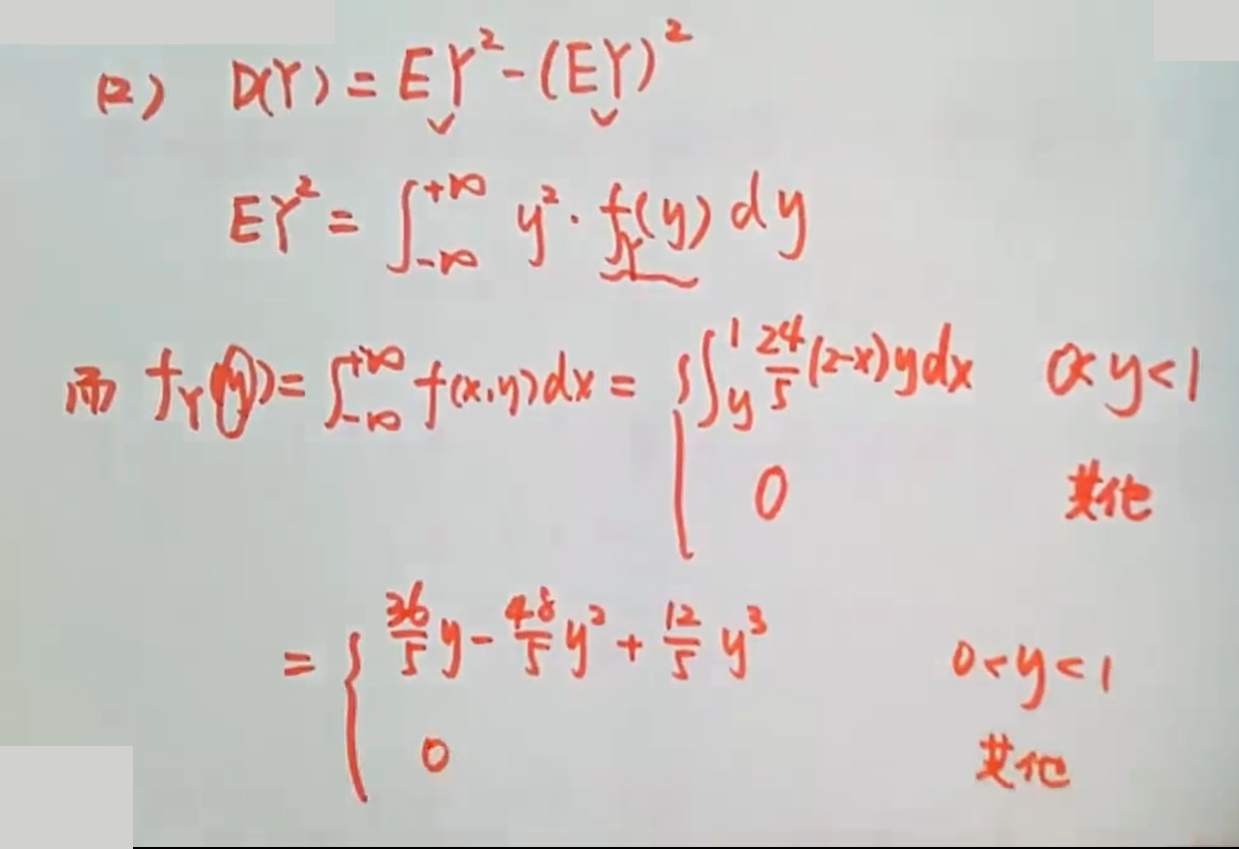 (2) D(Y) = EY² - (EY)²
EY² = ∫_{-∞}^{+∞} y² · f_Y(y) dy
而 f_Y(y) = ∫_{-∞}^{+∞} f(x,y)dx = { ∫_y^1 24/5 (2-x)y dx 0<y<1
0 其他
= { 36/5 y - 48/5 y² + 12/5 y³ 0<y<1
0 其他